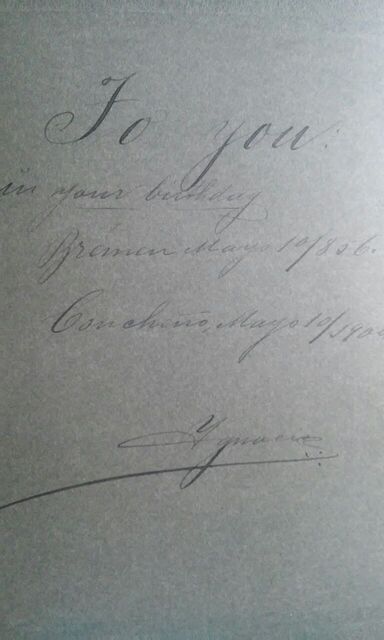 To you:
in your birthday
Brémen Mayo 10/856.
Conchiño, Mayo 10/190
Ygnacio